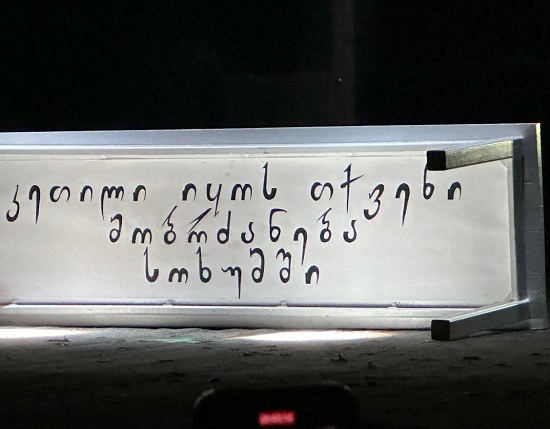 კეთილი იყოს თქვენი
მობრძანება
სოხუმში